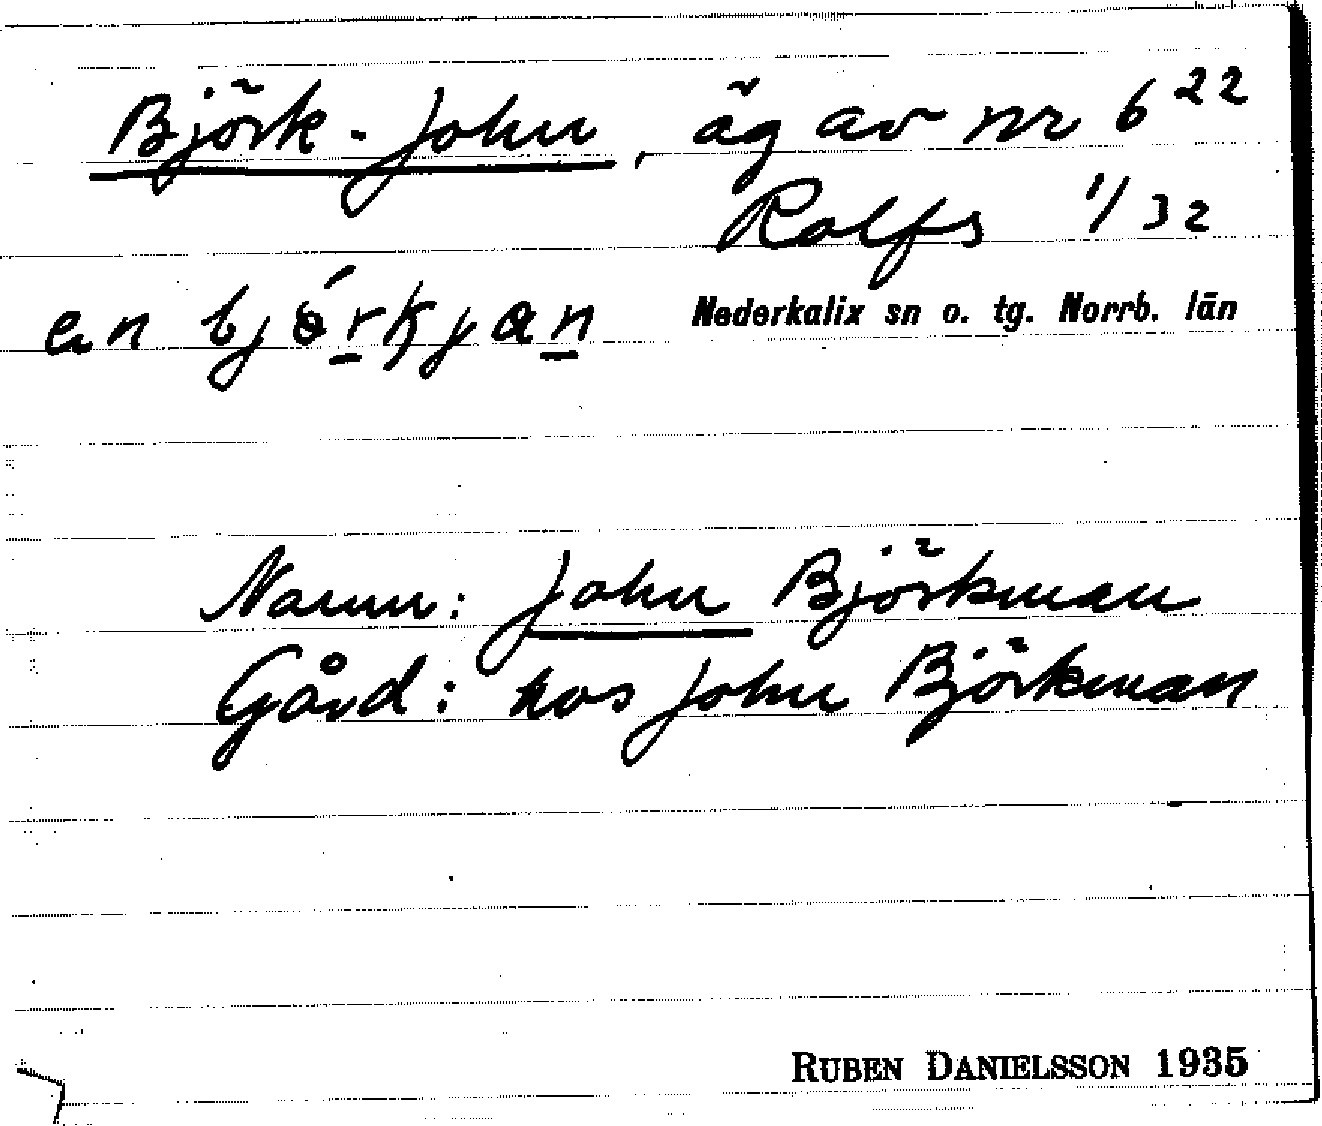 Björk-John, äg av nr 6²²
Rolfs 1/32
en bjö́rkjan
Nederkalix sn o. tg. Norrb. län
Namn: John Björkman
Gård: hos John Björkman
RUBEN DANIELSSON 1935